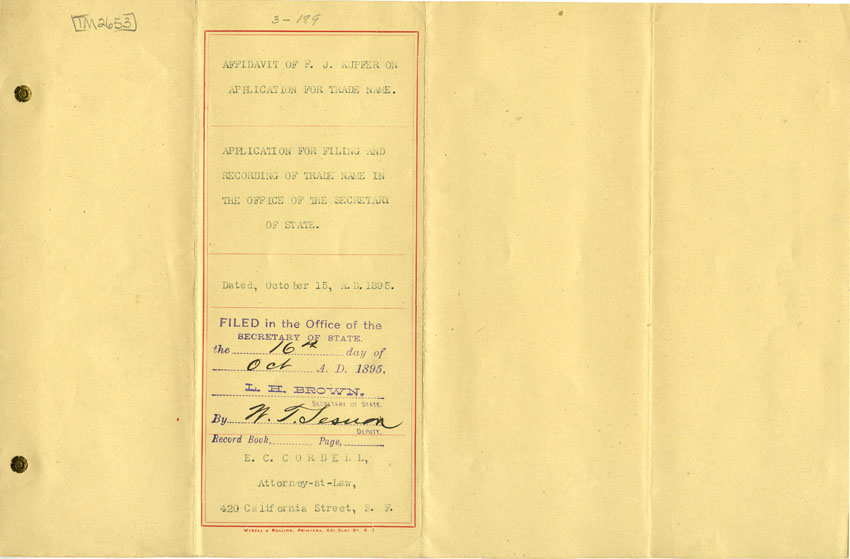 TM2653
3-189
AFFIDAVIT OF F. J. KUPFER ON
APPLICATION FOR TRADE NAME.
APPLICATION FOR FILING AND
RECORDING OF TRADE NAME IN
THE OFFICE OF THE SECRETARY
OF STATE.
Dated, October 15, A.D.1895.
FILED in the Office of the
SECRETARY OF STATE.
the 16th day of
Oct A. D. 1895.
L. H. BROWN.
SECRETARY OF STATE.
By W. T. Sesnon
DEPUTY.
Record Book, Page,
E. C. CORDELL,
Attorney-at-Law,
420 California Street, S. F.
MYSELL & ROLLINS, PRINTERS, 521 CLAY ST. S. F.